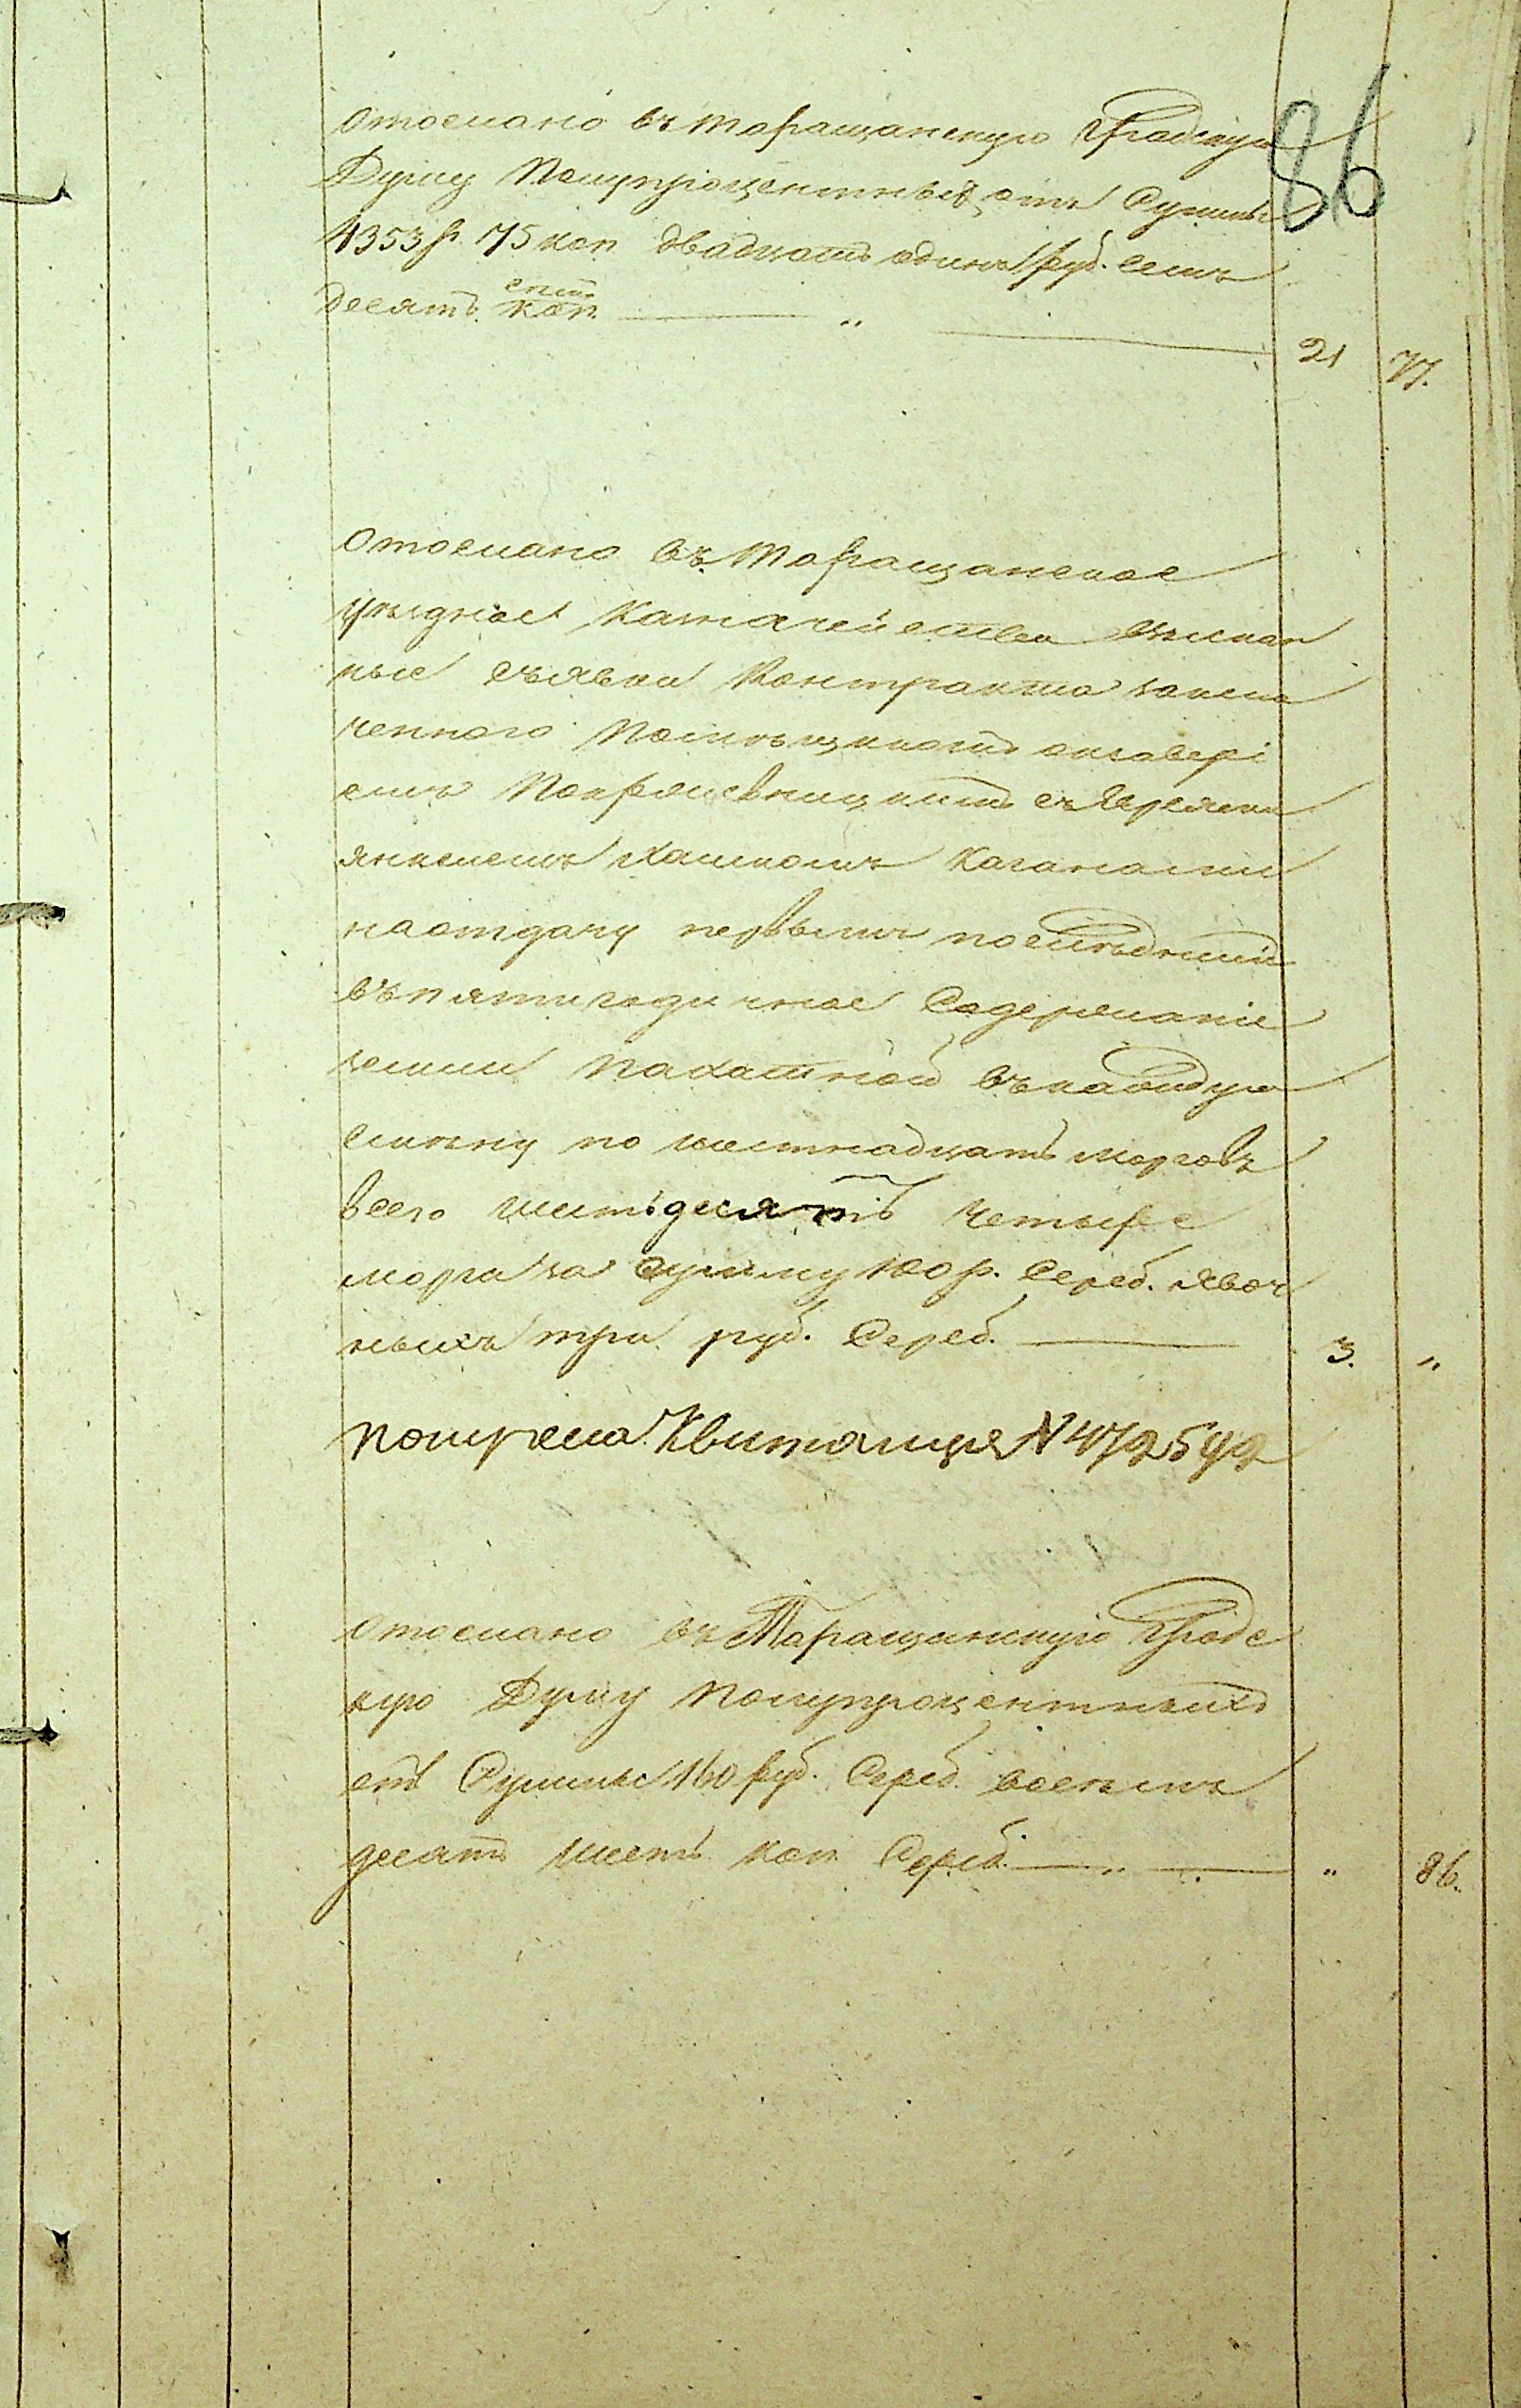 86
Отослано въ таращанскую Градскую
Думу Полупроцентныхъ отъ Суммы
4353 р. 75 коп двадцать одинъ руб. семь
десятъ семь коп. „ 21 77.
Отослано въ таращанское
уѣздное Казначейство взыскан
ные съ явки Контракта заклю
ченного Помѣщикомъ
съ Гершкомъ
Янкелемъ Хаимомъ Каганами
на отдачу первымъ послѣднимъ
въ пятигодичное Содержаніе
земли пахатной въ каждую
смѣну по шестнадцать морговъ
всего шестьдесятъ четыре
морга за Сумму р. Сереб. явоч
ныхъ три руб. Сереб. 3. „
получена Квитанція N 472592
Отослано въ Таращанскую Градс
кую Думу Полупроцентныхъ
отъ Суммы 160 руб. Сереб. восемь
десятъ шесть коп Сереб. „ „ 86.